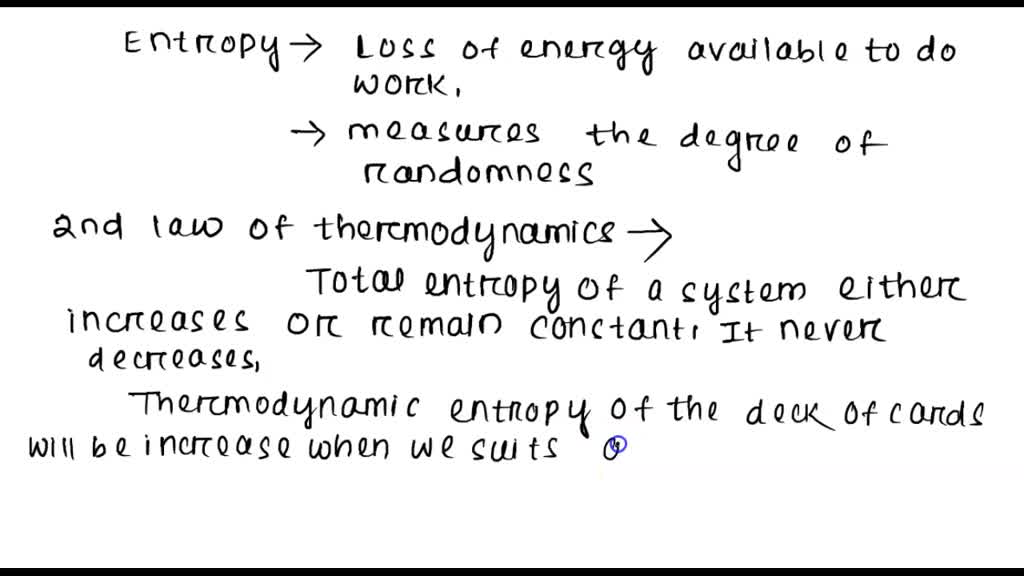 Entropy → Loss of energy available to do
work.
→ measures the degree of
randomness
2nd law of thermodynamics →
Total entropy of a system either
increases or remain constant. It never
decreases.
Thermodynamic entropy of the deck of cards
will be increase when we suits